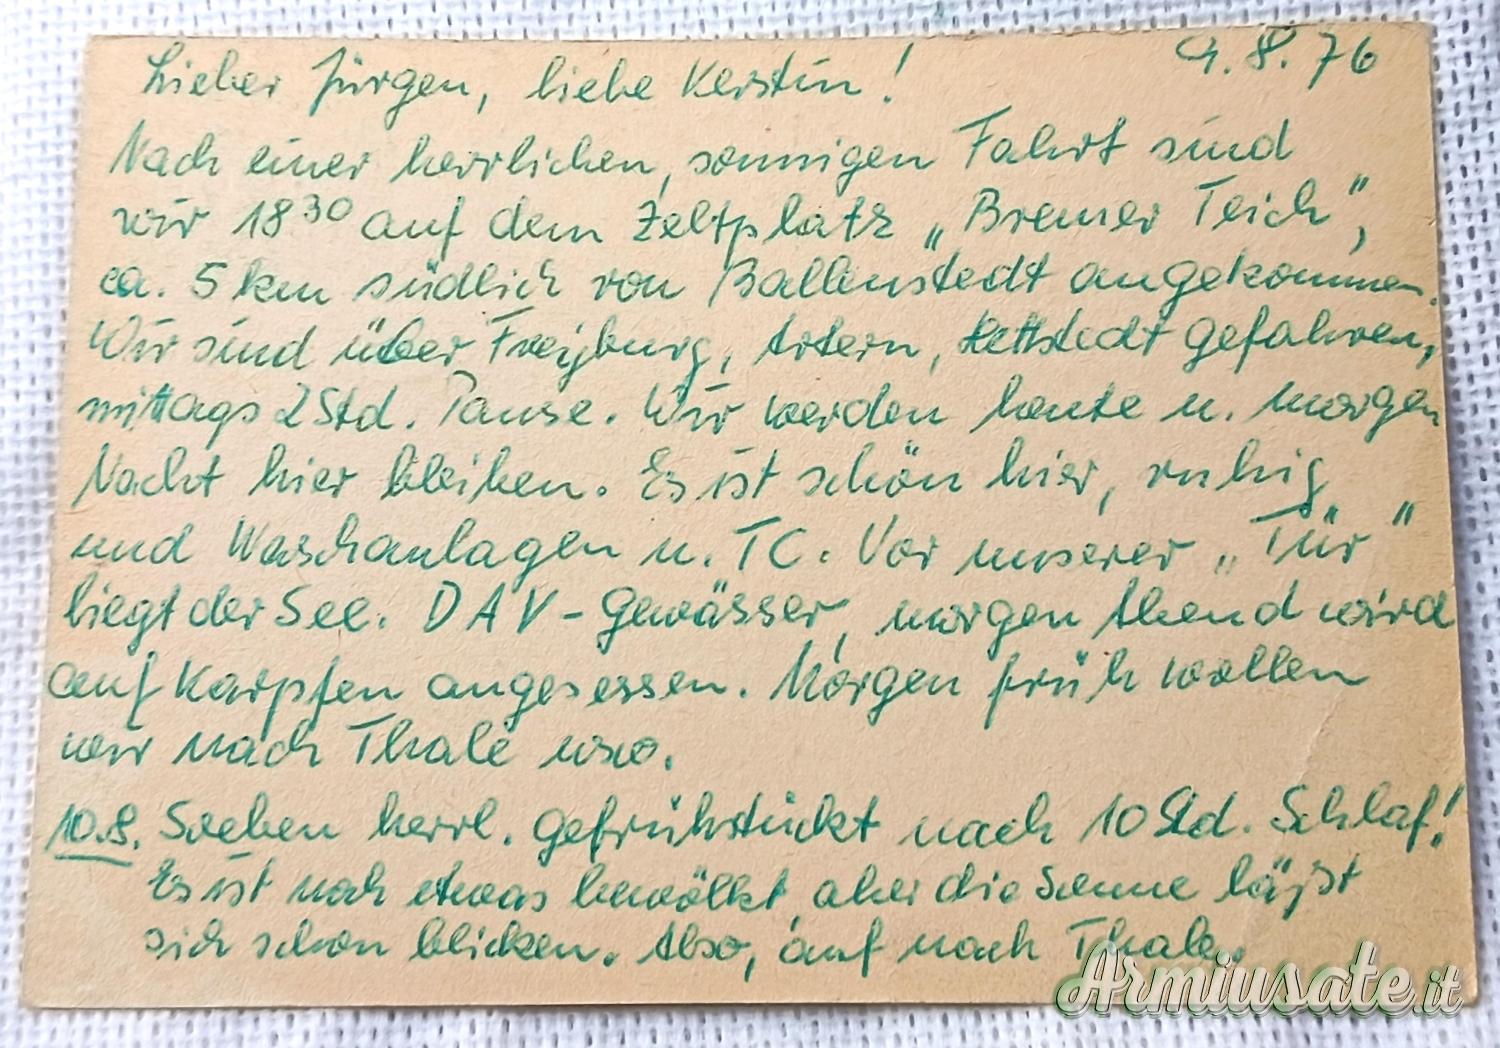 9.8.76
Lieber Jürgen, liebe Kerstin!
Nach einer herrlichen, sonnigen Fahrt sind
wir 18³⁰ auf dem Zeltplatz „Bremer Teich",
ca. 5 km südlich von Ballenstedt angekommen.
Wir sind über Freyburg, Artern, Hettstedt gefahren,
mittags 2 Std. Pause. Wir werden heute u. morgen
Nacht hier bleiben. Es ist schön hier, ruhig
und Waschanlagen u. TC. Vor unserer „Tür"
liegt der See. DAV-Gewässer, morgen Abend wird
auf Karpfen angesessen. Morgen früh wollen
wir nach Thale usw.
10.8. Soeben herrl. gefrühstückt nach 10 Std. Schlaf!
Es ist noch etwas bewölkt, aber die Sonne läßt
sich schon blicken. Also, auf nach Thale.
Armiusate.it